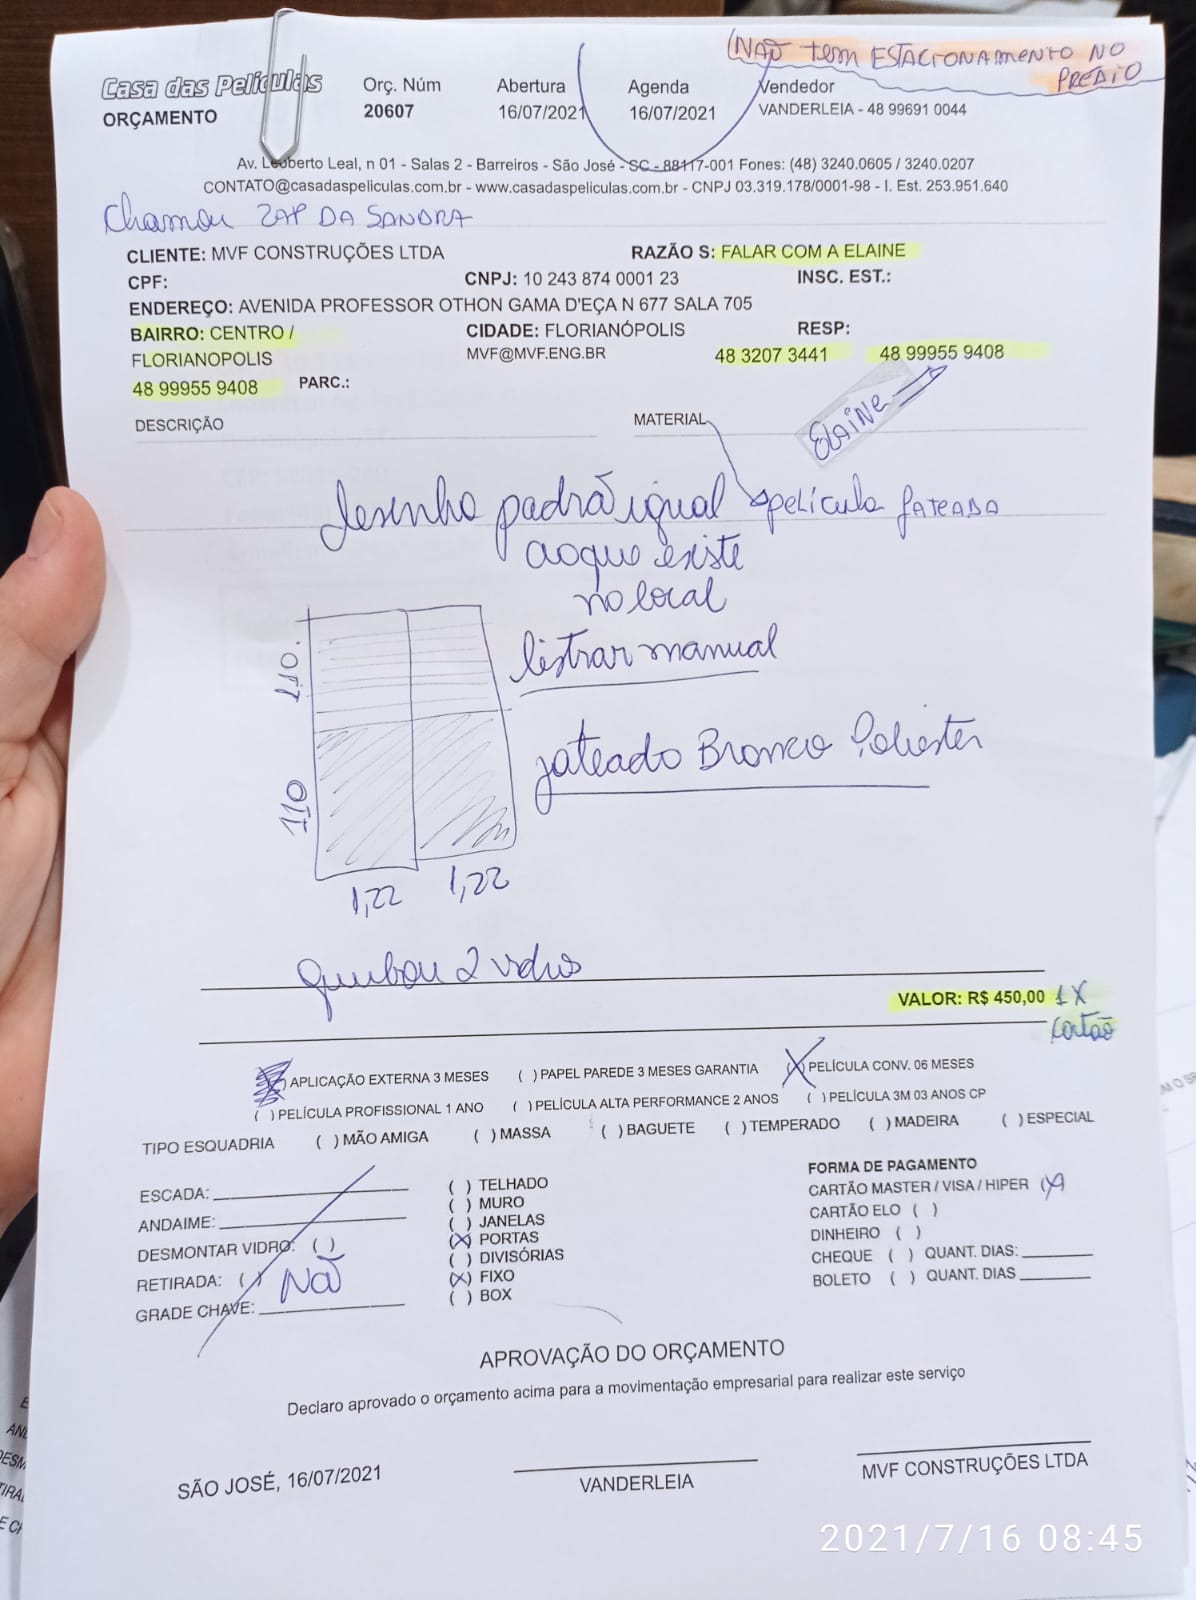 (NÃO tem ESTACIONAMENTO NO
PREDIO
Casa das Películas
ORÇAMENTO
Orç. Núm
20607
Abertura
16/07/2021
Agenda
16/07/2021
Vendedor
VANDERLEIA - 48 99691 0044
Av. Leoberto Leal, n 01 - Salas 2 - Barreiros - São José - SC - 88117-001 Fones: (48) 3240.0605 / 3240.0207
CONTATO@casadaspeliculas.com.br - www.casadaspeliculas.com.br - CNPJ 03.319.178/0001-98 - I. Est. 253.951.640
Chamou ZAP DA SANDRA
CLIENTE: MVF CONSTRUÇÕES LTDA RAZÃO S: FALAR COM A ELAINE
CPF: CNPJ: 10 243 874 0001 23 INSC. EST.:
ENDEREÇO: AVENIDA PROFESSOR OTHON GAMA D'EÇA N 677 SALA 705
BAIRRO: CENTRO / CIDADE: FLORIANÓPOLIS RESP:
FLORIANOPOLIS MVF@MVF.ENG.BR 48 3207 3441 48 99955 9408
48 99955 9408 PARC.:
ELAINE
DESCRIÇÃO MATERIAL
desenho padrão igual película jateada
ao que existe
no local
listrar manual
1,10.
jateado Branco Poliester
110
1,22 1,22
quebou 2 vidros
VALOR: R$ 450,00 1X
cartão
APLICAÇÃO EXTERNA 3 MESES ( ) PAPEL PAREDE 3 MESES GARANTIA (X) PELÍCULA CONV. 06 MESES
( ) PELÍCULA PROFISSIONAL 1 ANO ( ) PELÍCULA ALTA PERFORMANCE 2 ANOS ( ) PELÍCULA 3M 03 ANOS CP
TIPO ESQUADRIA ( ) MÃO AMIGA ( ) MASSA ( ) BAGUETE ( ) TEMPERADO ( ) MADEIRA ( ) ESPECIAL
ESCADA:
ANDAIME:
DESMONTAR VIDRO: ( )
RETIRADA: ( ) NÃO
GRADE CHAVE:
( ) TELHADO
( ) MURO
( ) JANELAS
(X) PORTAS
( ) DIVISÓRIAS
(X) FIXO
( ) BOX
FORMA DE PAGAMENTO
CARTÃO MASTER / VISA / HIPER (X)
CARTÃO ELO ( )
DINHEIRO ( )
CHEQUE ( ) QUANT. DIAS:
BOLETO ( ) QUANT. DIAS
APROVAÇÃO DO ORÇAMENTO
Declaro aprovado o orçamento acima para a movimentação empresarial para realizar este serviço
SÃO JOSÉ, 16/07/2021 VANDERLEIA MVF CONSTRUÇÕES LTDA
2021/7/16 08:45